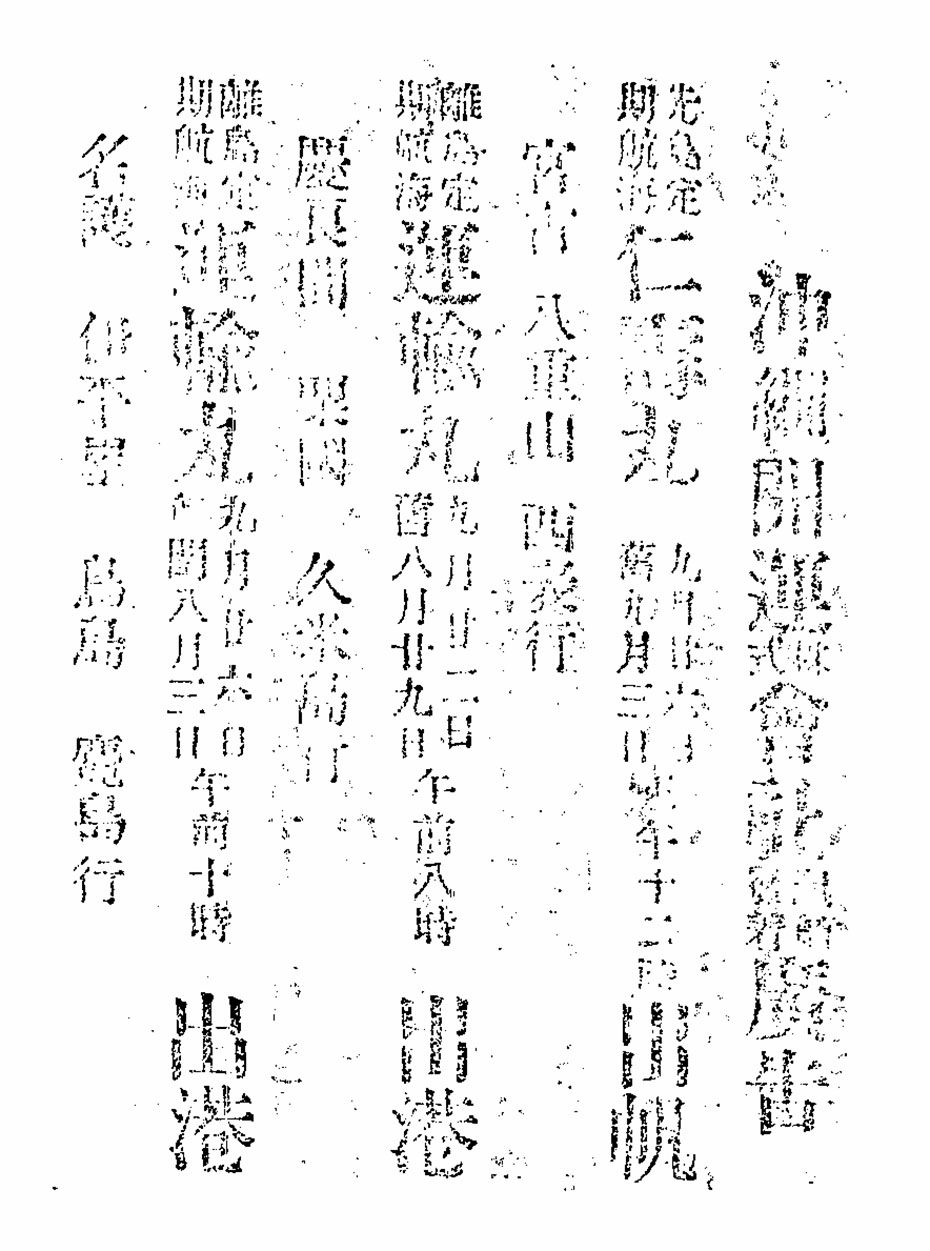 沖繩開運株式會社廣告
先島定期航海 仁壽丸 九月廿六日 舊九月三日 十二時 出帆
宮古 八重山 西表行
離島定期航海 運輸丸 九月廿二日 舊八月廿九日 午前八時 出港
慶良間 粟國 久米島行
離島定期航海 運輸丸 九月廿六日 閏八月三日 午前十時 出港
名護 伊平屋 鳥島 鹿島行